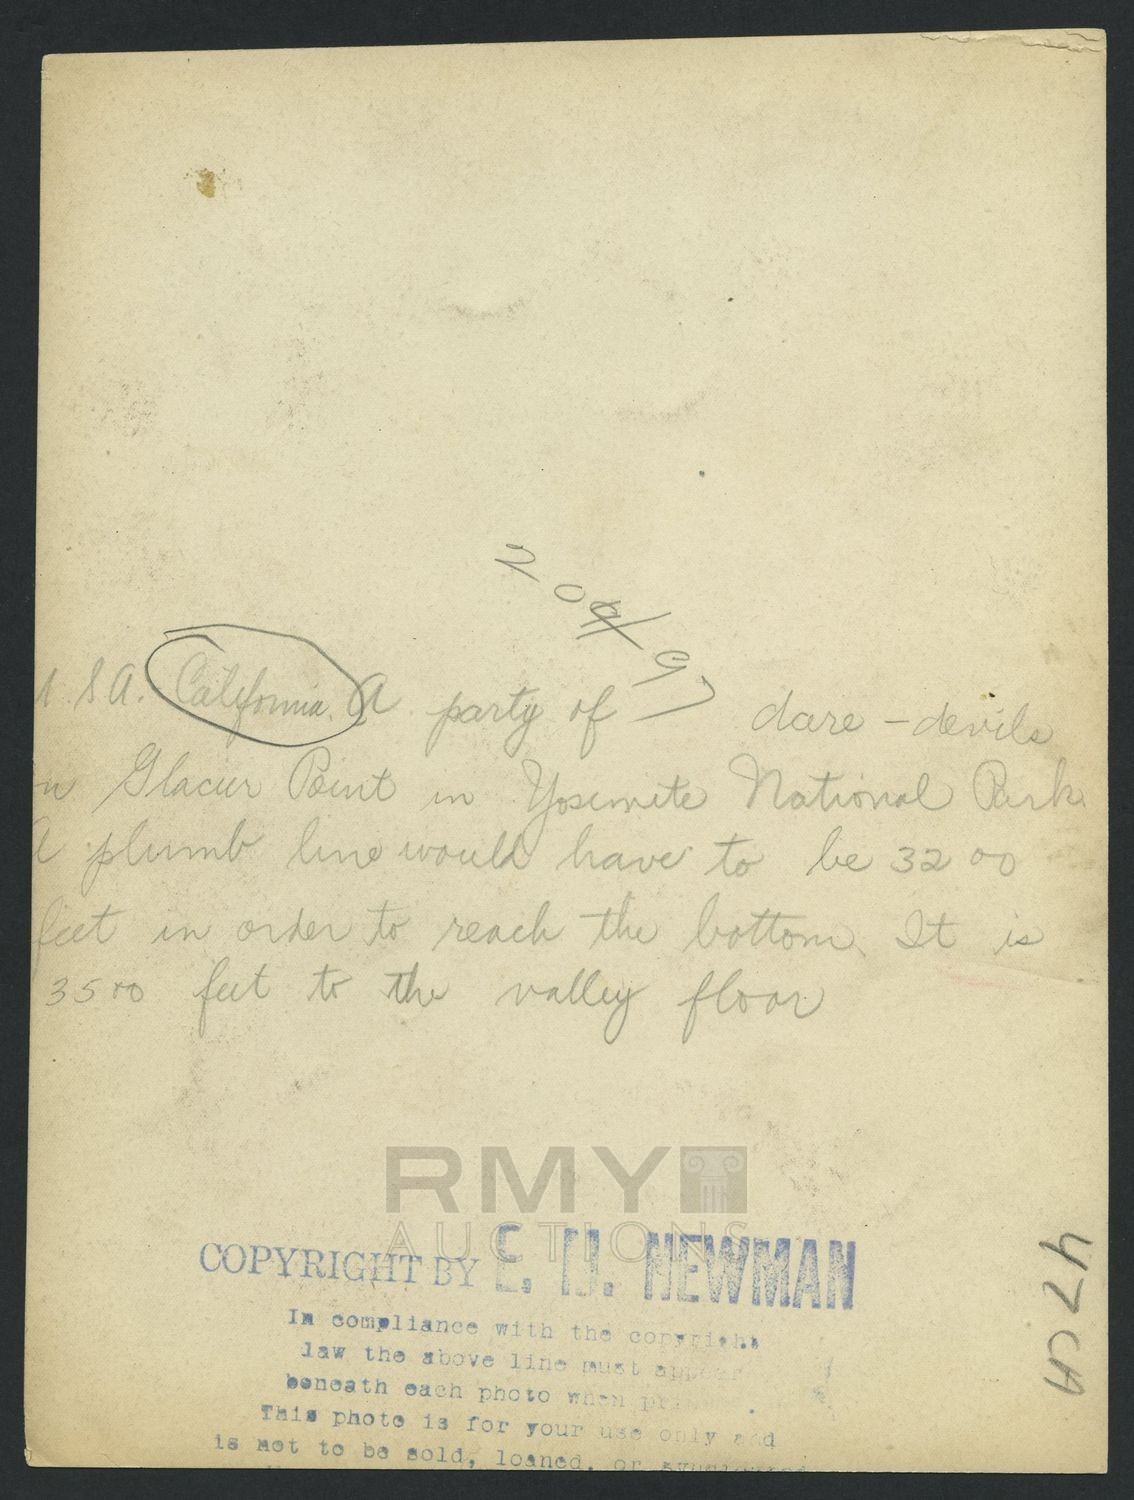 S A. California. A party of dare-devils
Glacier Point in Yosemite National Park
plumb line would have to be 3200
feet in order to reach the bottom. It is
3500 feet to the valley floor
RMY
AUCTIONS
COPYRIGHT BY E. NEWMAN
In compliance with the copyright
law the above line must appear
beneath each photo when
This photo is for your use only and
is not to be sold, loaned, or